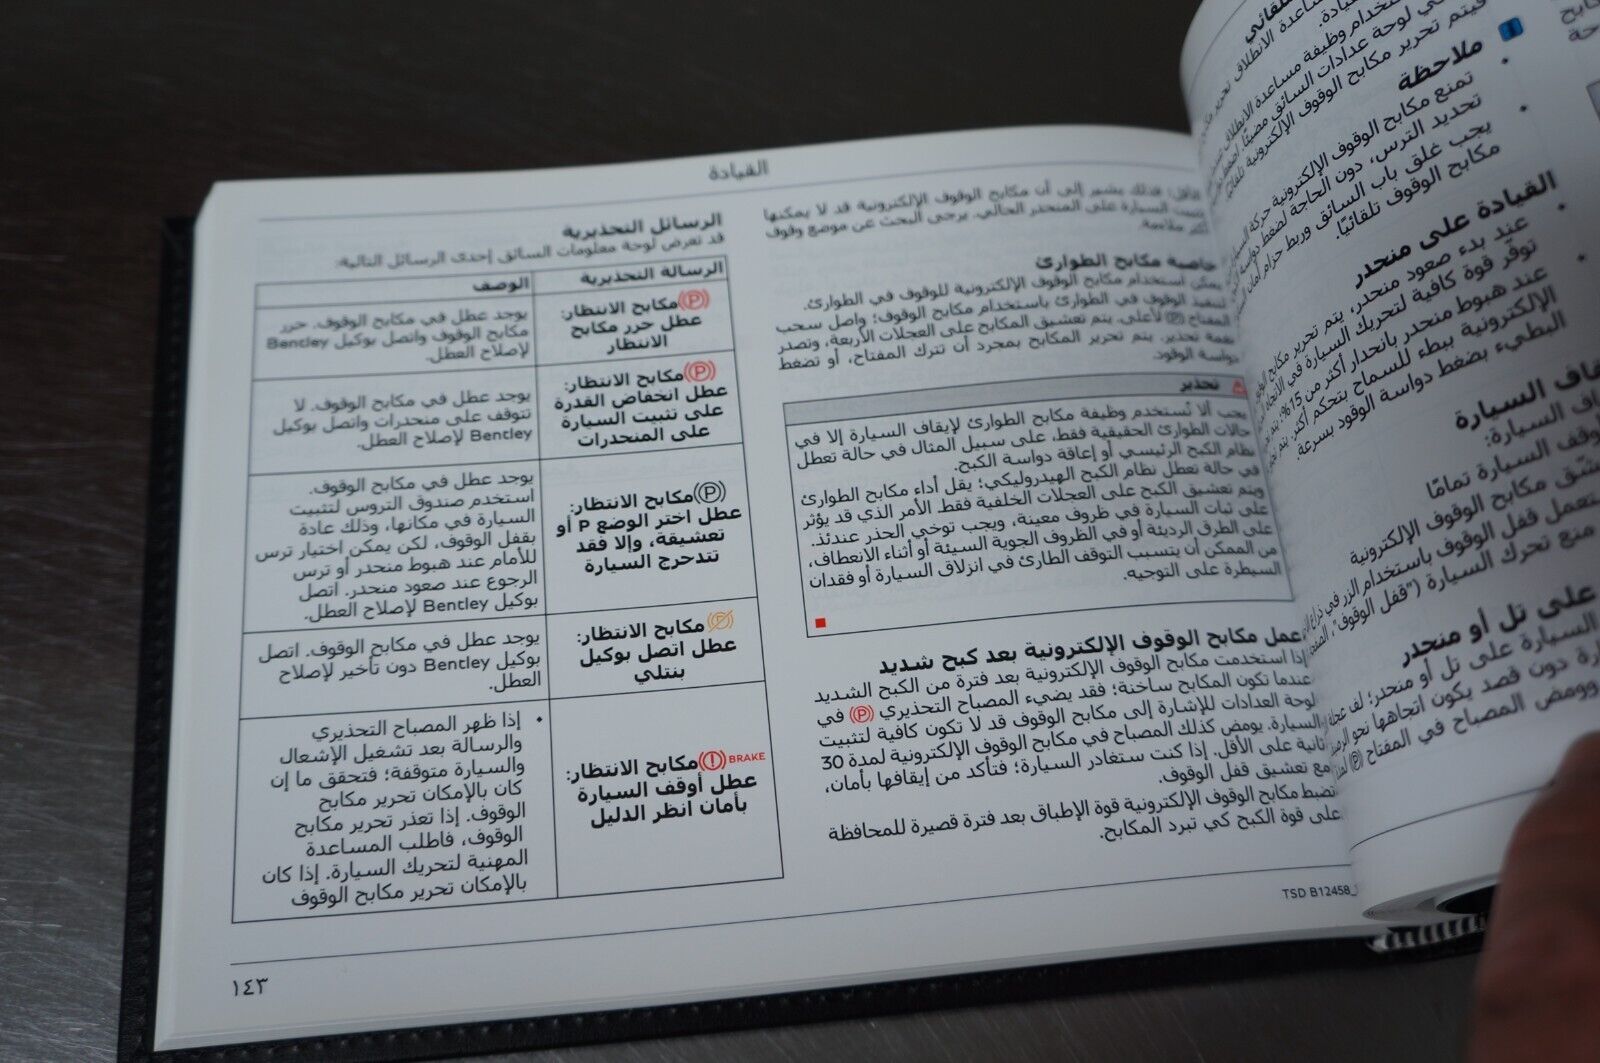 القيادة
كافٍ؛ فذلك يشير إلى أن مكابح الوقوف الإلكترونية قد لا يمكنها
تثبيت السيارة على المنحدر الحالي. يرجى البحث عن موضع وقوف
أكثر ملاءمة.
خاصية مكابح الطوارئ
يمكن استخدام مكابح الوقوف الإلكترونية للوقوف في الطوارئ.
لتنفيذ الوقوف في الطوارئ باستخدام مكابح الوقوف؛ واصل سحب
المفتاح (P) لأعلى. يتم تعشيق المكابح على العجلات الأربعة، وتصدر
نغمة تحذير. يتم تحرير المكابح بمجرد أن تترك المفتاح، أو تضغط
دواسة الوقود.
تحذير
يجب ألا تُستخدم وظيفة مكابح الطوارئ لإيقاف السيارة إلا في
حالات الطوارئ الحقيقية فقط، على سبيل المثال في حالة تعطل
نظام الكبح الرئيسي أو إعاقة دواسة الكبح.
في حالة تعطل نظام الكبح الهيدروليكي؛ يقل أداء مكابح الطوارئ
ويتم تعشيق الكبح على العجلات الخلفية فقط. الأمر الذي قد يؤثر
على ثبات السيارة في ظروف معينة، ويجب توخي الحذر عندئذ.
على الطرق الرديئة أو في الظروف الجوية السيئة أو أثناء الانعطاف،
من الممكن أن يتسبب التوقف الطارئ في انزلاق السيارة أو فقدان
السيطرة على التوجيه.
عمل مكابح الوقوف الإلكترونية بعد كبح شديد
إذا استخدمت مكابح الوقوف الإلكترونية بعد فترة من الكبح الشديد
عندما تكون المكابح ساخنة؛ فقد يضيء المصباح التحذيري (P) في
لوحة العدادات للإشارة إلى مكابح الوقوف قد لا تكون كافية لتثبيت
السيارة. يومض كذلك المصباح في مكابح الوقوف الإلكترونية لمدة 30
ثانية على الأقل. إذا كنت ستغادر السيارة؛ فتأكد من إيقافها بأمان،
مع تعشيق قفل الوقوف.
تضبط مكابح الوقوف الإلكترونية قوة الإطباق بعد فترة قصيرة للمحافظة
على قوة الكبح كي تبرد المكابح.
الرسائل التحذيرية
قد تعرض لوحة معلومات السائق إحدى الرسائل التالية:
الرسالة التحذيرية
الوصف
(P) مكابح الانتظار:
عطل حرر مكابح
الانتظار
يوجد عطل في مكابح الوقوف. حرر
مكابح الوقوف واتصل بوكيل Bentley
لإصلاح العطل.
(P) مكابح الانتظار:
عطل انخفاض القدرة
على تثبيت السيارة
على المنحدرات
يوجد عطل في مكابح الوقوف. لا
تتوقف على منحدرات واتصل بوكيل
Bentley لإصلاح العطل.
(P) مكابح الانتظار:
عطل اختر الوضع P أو
تعشيقة، وإلا فقد
تتدحرج السيارة
يوجد عطل في مكابح الوقوف.
استخدم صندوق التروس لتثبيت
السيارة في مكانها، وذلك عادة
بقفل الوقوف، لكن يمكن اختيار ترس
للأمام عند هبوط منحدر أو ترس
الرجوع عند صعود منحدر. اتصل
بوكيل Bentley لإصلاح العطل.
(P) مكابح الانتظار:
عطل اتصل بوكيل
بنتلي
يوجد عطل في مكابح الوقوف. اتصل
بوكيل Bentley دون تأخير لإصلاح
العطل.
BRAKE (!) مكابح الانتظار:
عطل أوقف السيارة
بأمان انظر الدليل
• إذا ظهر المصباح التحذيري
والرسالة بعد تشغيل الإشعال
والسيارة متوقفة؛ فتحقق ما إن
كان بالإمكان تحرير مكابح
الوقوف. إذا تعذر تحرير مكابح
الوقوف، فاطلب المساعدة
المهنية لتحريك السيارة. إذا كان
بالإمكان تحرير مكابح الوقوف
TSD B12458_
١٤٣
فيتم تحرير مكابح الوقوف الإلكترونية تلقائيًا
ملاحظة
• تمنع مكابح الوقوف الإلكترونية حركة
تحديد الترس، دون الحاجة لضغط دواسة
• يجب غلق باب السائق وربط حزام أمان
مكابح الوقوف تلقائيًا.
القيادة على منحدر
• عند بدء صعود منحدر، يتم تحرير مكابح
توفّر قوة كافية لتحريك السيارة في الاتجاه
• عند هبوط منحدر بانحدار أكثر من 15%؛ يتم
الإلكترونية ببطء للسماح بتحكم أكثر.
البطيء بضغط دواسة الوقود بسرعة.
السيارة
السيارة:
السيارة تمامًا
مكابح الوقوف الإلكترونية
قفل الوقوف باستخدام الزر في ذراع
منع تحرك السيارة ("قفل الوقوف"،
على تل أو منحدر
السيارة على تل أو منحدر؛ لف
دون قصد يكون اتجاهها نحو
وومض المصباح في المفتاح (P)